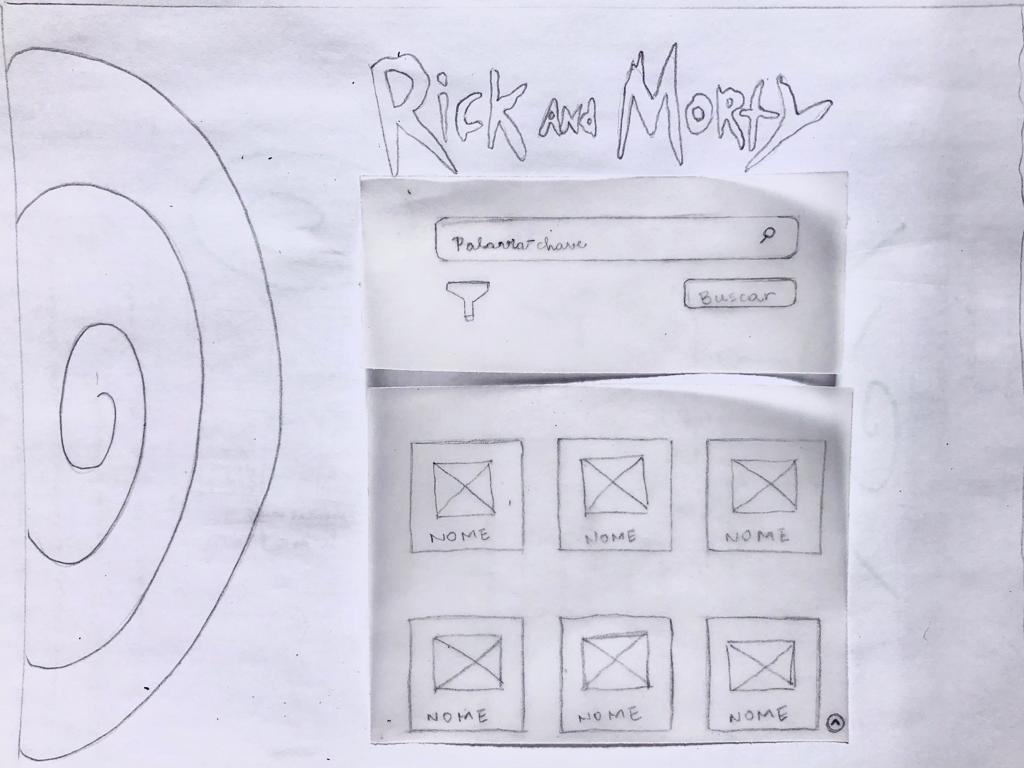 Rick and Morty
Palavra-chave
Buscar
NOME NOME NOME
NOME NOME NOME